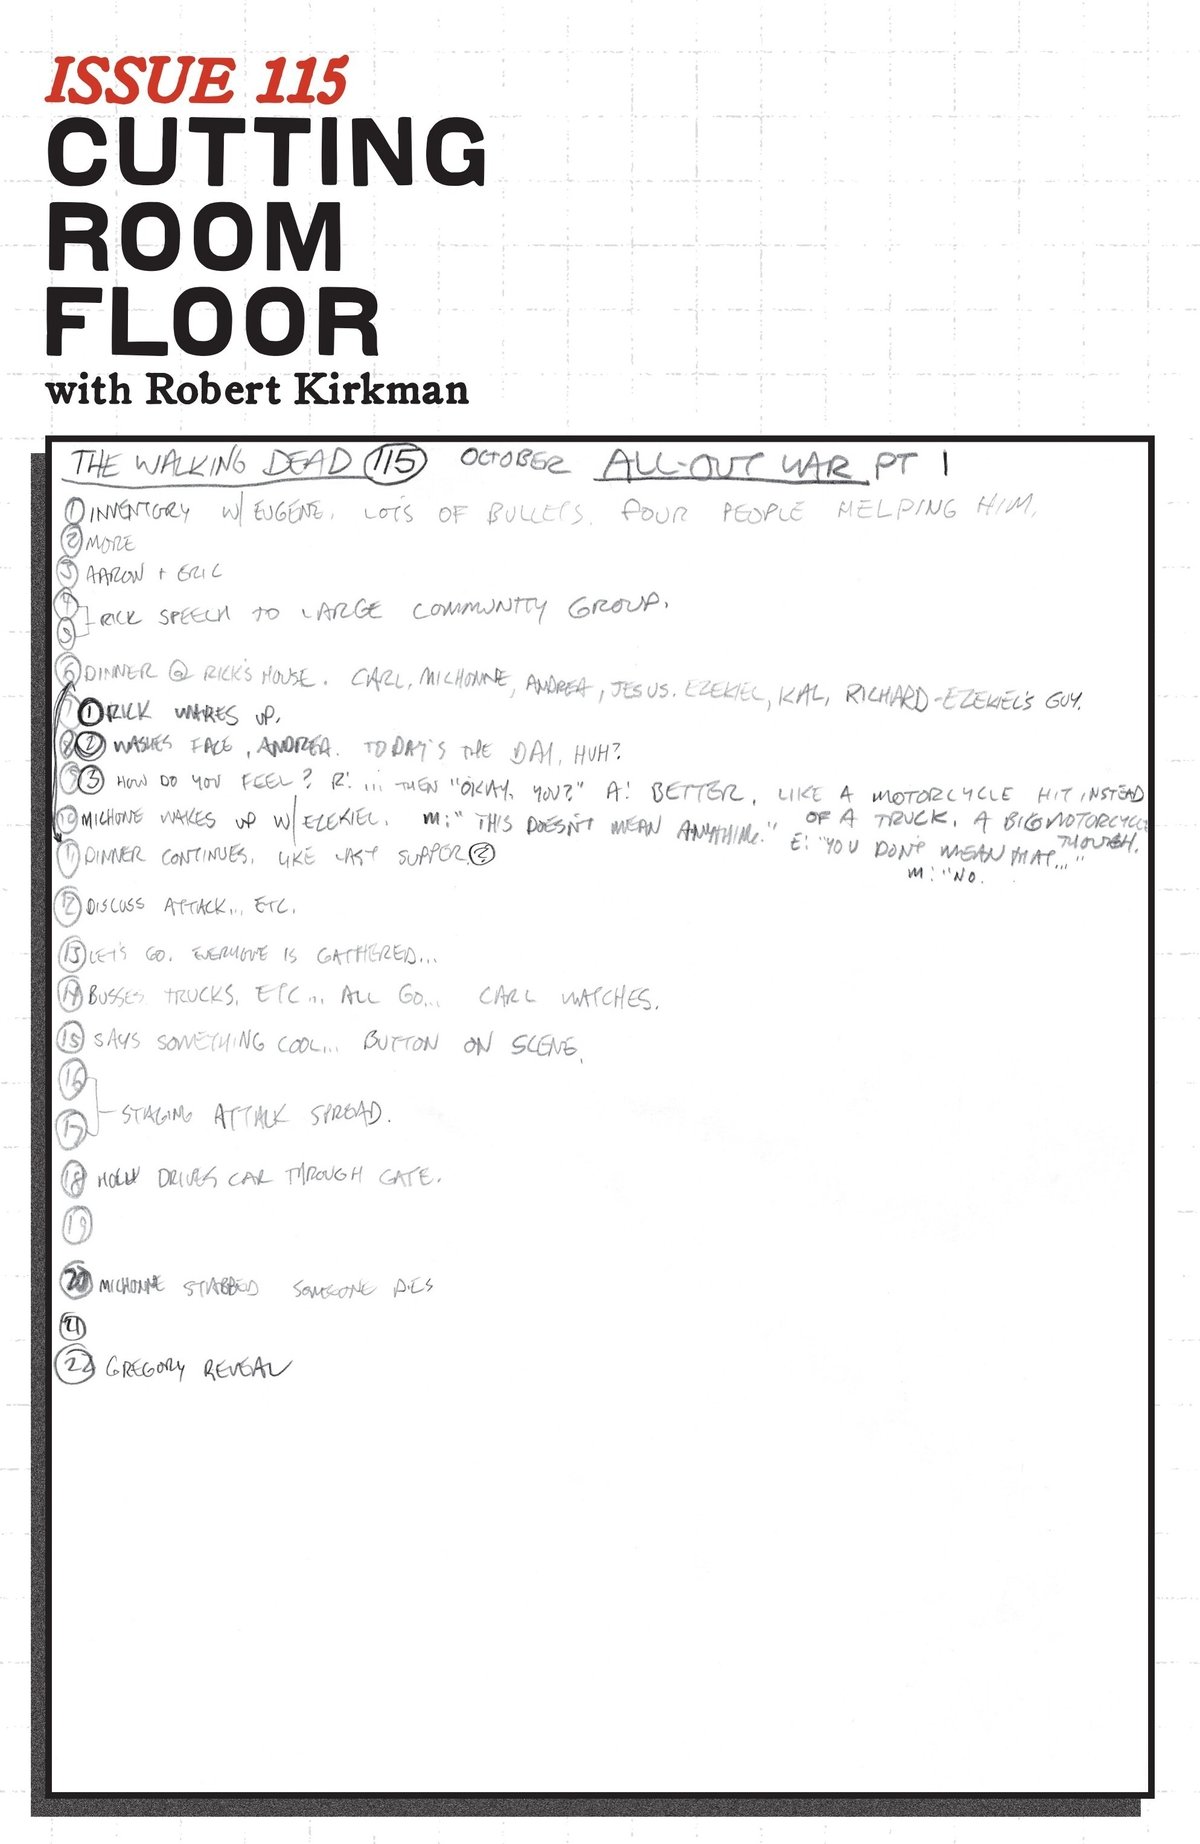 ISSUE 115
CUTTING
ROOM
FLOOR
with Robert Kirkman
THE WALKING DEAD 115 OCTOBER ALL-OUT WAR PT 1
1 INVENTORY W/ EUGENE. LOTS OF BULLETS. FOUR PEOPLE HELPING HIM.
2 MORE
3 AARON + ERIC
4
RICK SPEECH TO LARGE COMMUNITY GROUP.
5
6 DINNER @ RICK'S HOUSE. CARL, MICHONNE, ANDREA, JESUS. EZEKIEL, KAL, RICHARD-EZEKIEL'S GUY.
7 1 RICK WAKES UP.
8 2 WASHES FACE, ANDREA. TODAY'S THE DAY, HUH?
9 3 HOW DO YOU FEEL? R: ... THEN "OKAY. YOU?" A: BETTER. LIKE A MOTORCYCLE HIT INSTEAD
OF A TRUCK. A BIG MOTORCYCLE
THOUGH.
10 MICHONE WAKES UP W/ EZEKIEL. M: "THIS DOESN'T MEAN ANYTHING." E: "YOU DON'T MEAN THAT..."
M: "NO.
11 DINNER CONTINUES. LIKE LAST SUPPER. 2
12 DISCUSS ATTACK... ETC.
13 LET'S GO. EVERYONE IS GATHERED...
14 BUSSES TRUCKS, ETC... ALL GO... CARL WATCHES.
15 SAYS SOMETHING COOL... BUTTON ON SCENE.
16
STAGING ATTACK SPREAD.
17
18 HOLLY DRIVES CAR THROUGH GATE.
19
20 MICHONNE STABBED SOMEONE DIES
21
22 GREGORY REVEAL